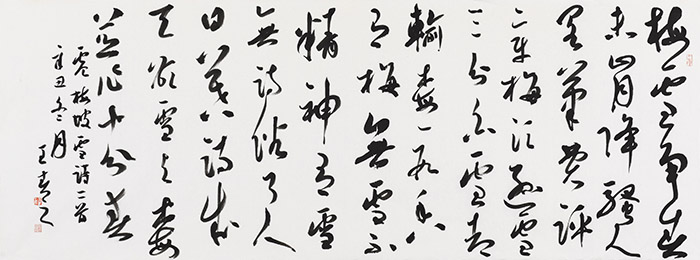 梅雪争春
未肯降骚人
阁笔费评
章梅须逊雪
三分白雪却
输梅一段香
有梅无雪不
精神有雪
无诗俗了人
日暮诗成
天又雪与梅
并作十分春
卢梅坡雪诗二首
辛丑冬月
王